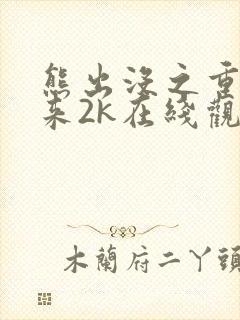 熊出没之重
来2K在綫觀
木蘭府二丫頭